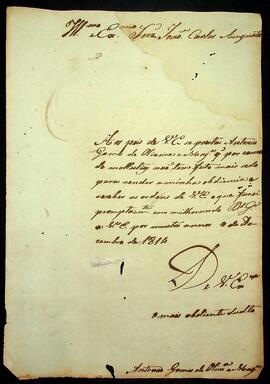 Ill.mo
e Ex.mo Snr. João Carlos Augusto
Aos pés de V.E. se prostra Antonio
Gomes de Oliveira e Mag.es q. por causa
de molestia não tem feito mais cedo
para render a minha obdiencia e
receber as ordens de V.E. o que farei
promptam.te em milhorando D.s G.e
a V.E. por muitos annos 9 de De
zembro de 1814
De V. Ex.a
o mais obdiente subdito
Antonio Gomes de Oliv.a e Mag.es